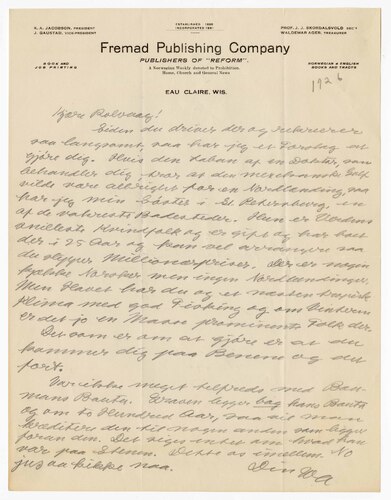 K. A. JACOBSON, PRESIDENT
J. GAUSTAD, VICE-PRESIDENT
ESTABLISHED 1886
INCORPORATED 1891
PROF. J. J. SKORDALSVOLD SEC'Y
WALDEMAR AGER, TREASURER
Fremad Publishing Company
PUBLISHERS OF "REFORM"
A Norwegian Weekly devoted to Prohibition,
Home, Church and General News
BOOK AND
JOB PRINTING
NORWEGIAN & ENGLISH
BOOKS AND TRACTS
EAU CLAIRE, WIS.
1926
Kjære Rolvaag!
Siden du driver der og rekreerer
saa langsomt, saa har jeg et Forslag at
gjøre dig. Hvis den Laban af en Doktor, som
behandler dig tror at den mexikanske Golf
vilde være allright for en Nordlænding, saa
har jeg min Søster i St. Petersburg, en
af de vakreste Badesteder. Hun er Verdens
snilleste Kvindfolk og er gift og har boet
der i 25 Aar og kan vel arrangere saa
du slipper Millionærpriser. Der er nogen
kjække Norsker men ingen Nordlændinger.
Men Havet har du og et næsten tropisk
Klima med god Fisking og om Vinteren
er det jo en Masse prominente Folk der.
Det som er om at gjøre er at du
kommer dig paa Benene og det
fort.
Var ikke meget tilfreds med Bau-
mans Bauta. Graven ligger bag hans Bauta
og om to Hundred Aar, saa vil man
kreditere den til nogen anden som ligger
foran den. Det siges intet om hvad han
var paa Stenen. Dette os imellem. No
jus aa kikke naa.
Din WA